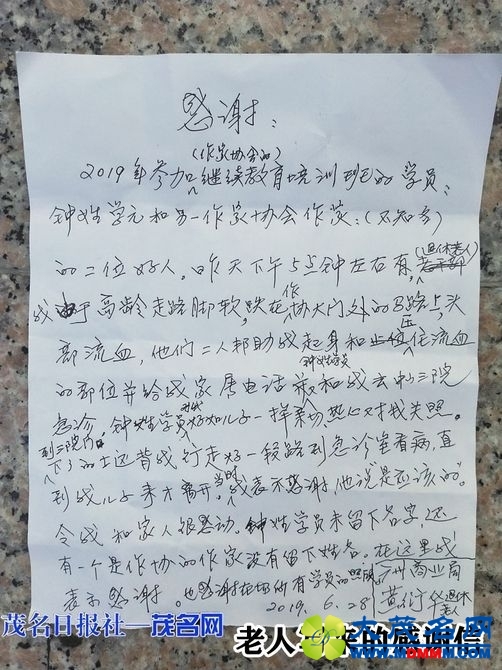 感谢：
(作家协会的)
2019年参加继续教育培训班的学员：
钟姓学元和另一作家协会作家：(不知名)
的二位好人。昨天下午5点钟左右有，
(退休老人)
我由于高龄走路脚软，跌在协大门外的马路上，头
作
部流血，他们二人邦助我起身和住流血
压
钟姓学员
的部位并给我家居电话并和我去中三院
急诊，钟姓学员好如儿子一样热心对我关照。
到三院门
下的士还背我行走好一段路到急诊室看病，直
到我儿子来才离开，我表示感谢他说是应该的。
当时
令我和家人很感动。钟姓学员未留下名字，还
有一个是作协的作家没有留下姓名。在这里我
表示感谢。也感谢在场所有学员的照顾
广州商业局
黄衍华
退休老人
2019.6.28
茂名日报社—茂名网
老人